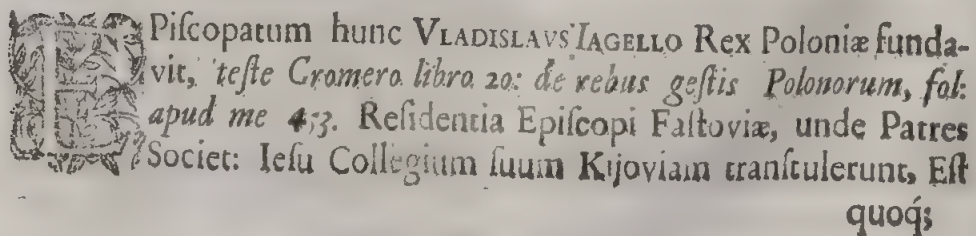 EPiſcopatum hunc VLADISLAVS IAGELLO Rex Poloniæ funda-
vit, teſte Cromero libro 20: de rebus geſtis Polonorum, fol:
apud me 4;3. Reſidentia Epiſcopi Faſtoviæ, unde Patres
Societ: Ieſu Collegium ſuum Kijoviam tranſtulerunt, Eſt
quoq́;